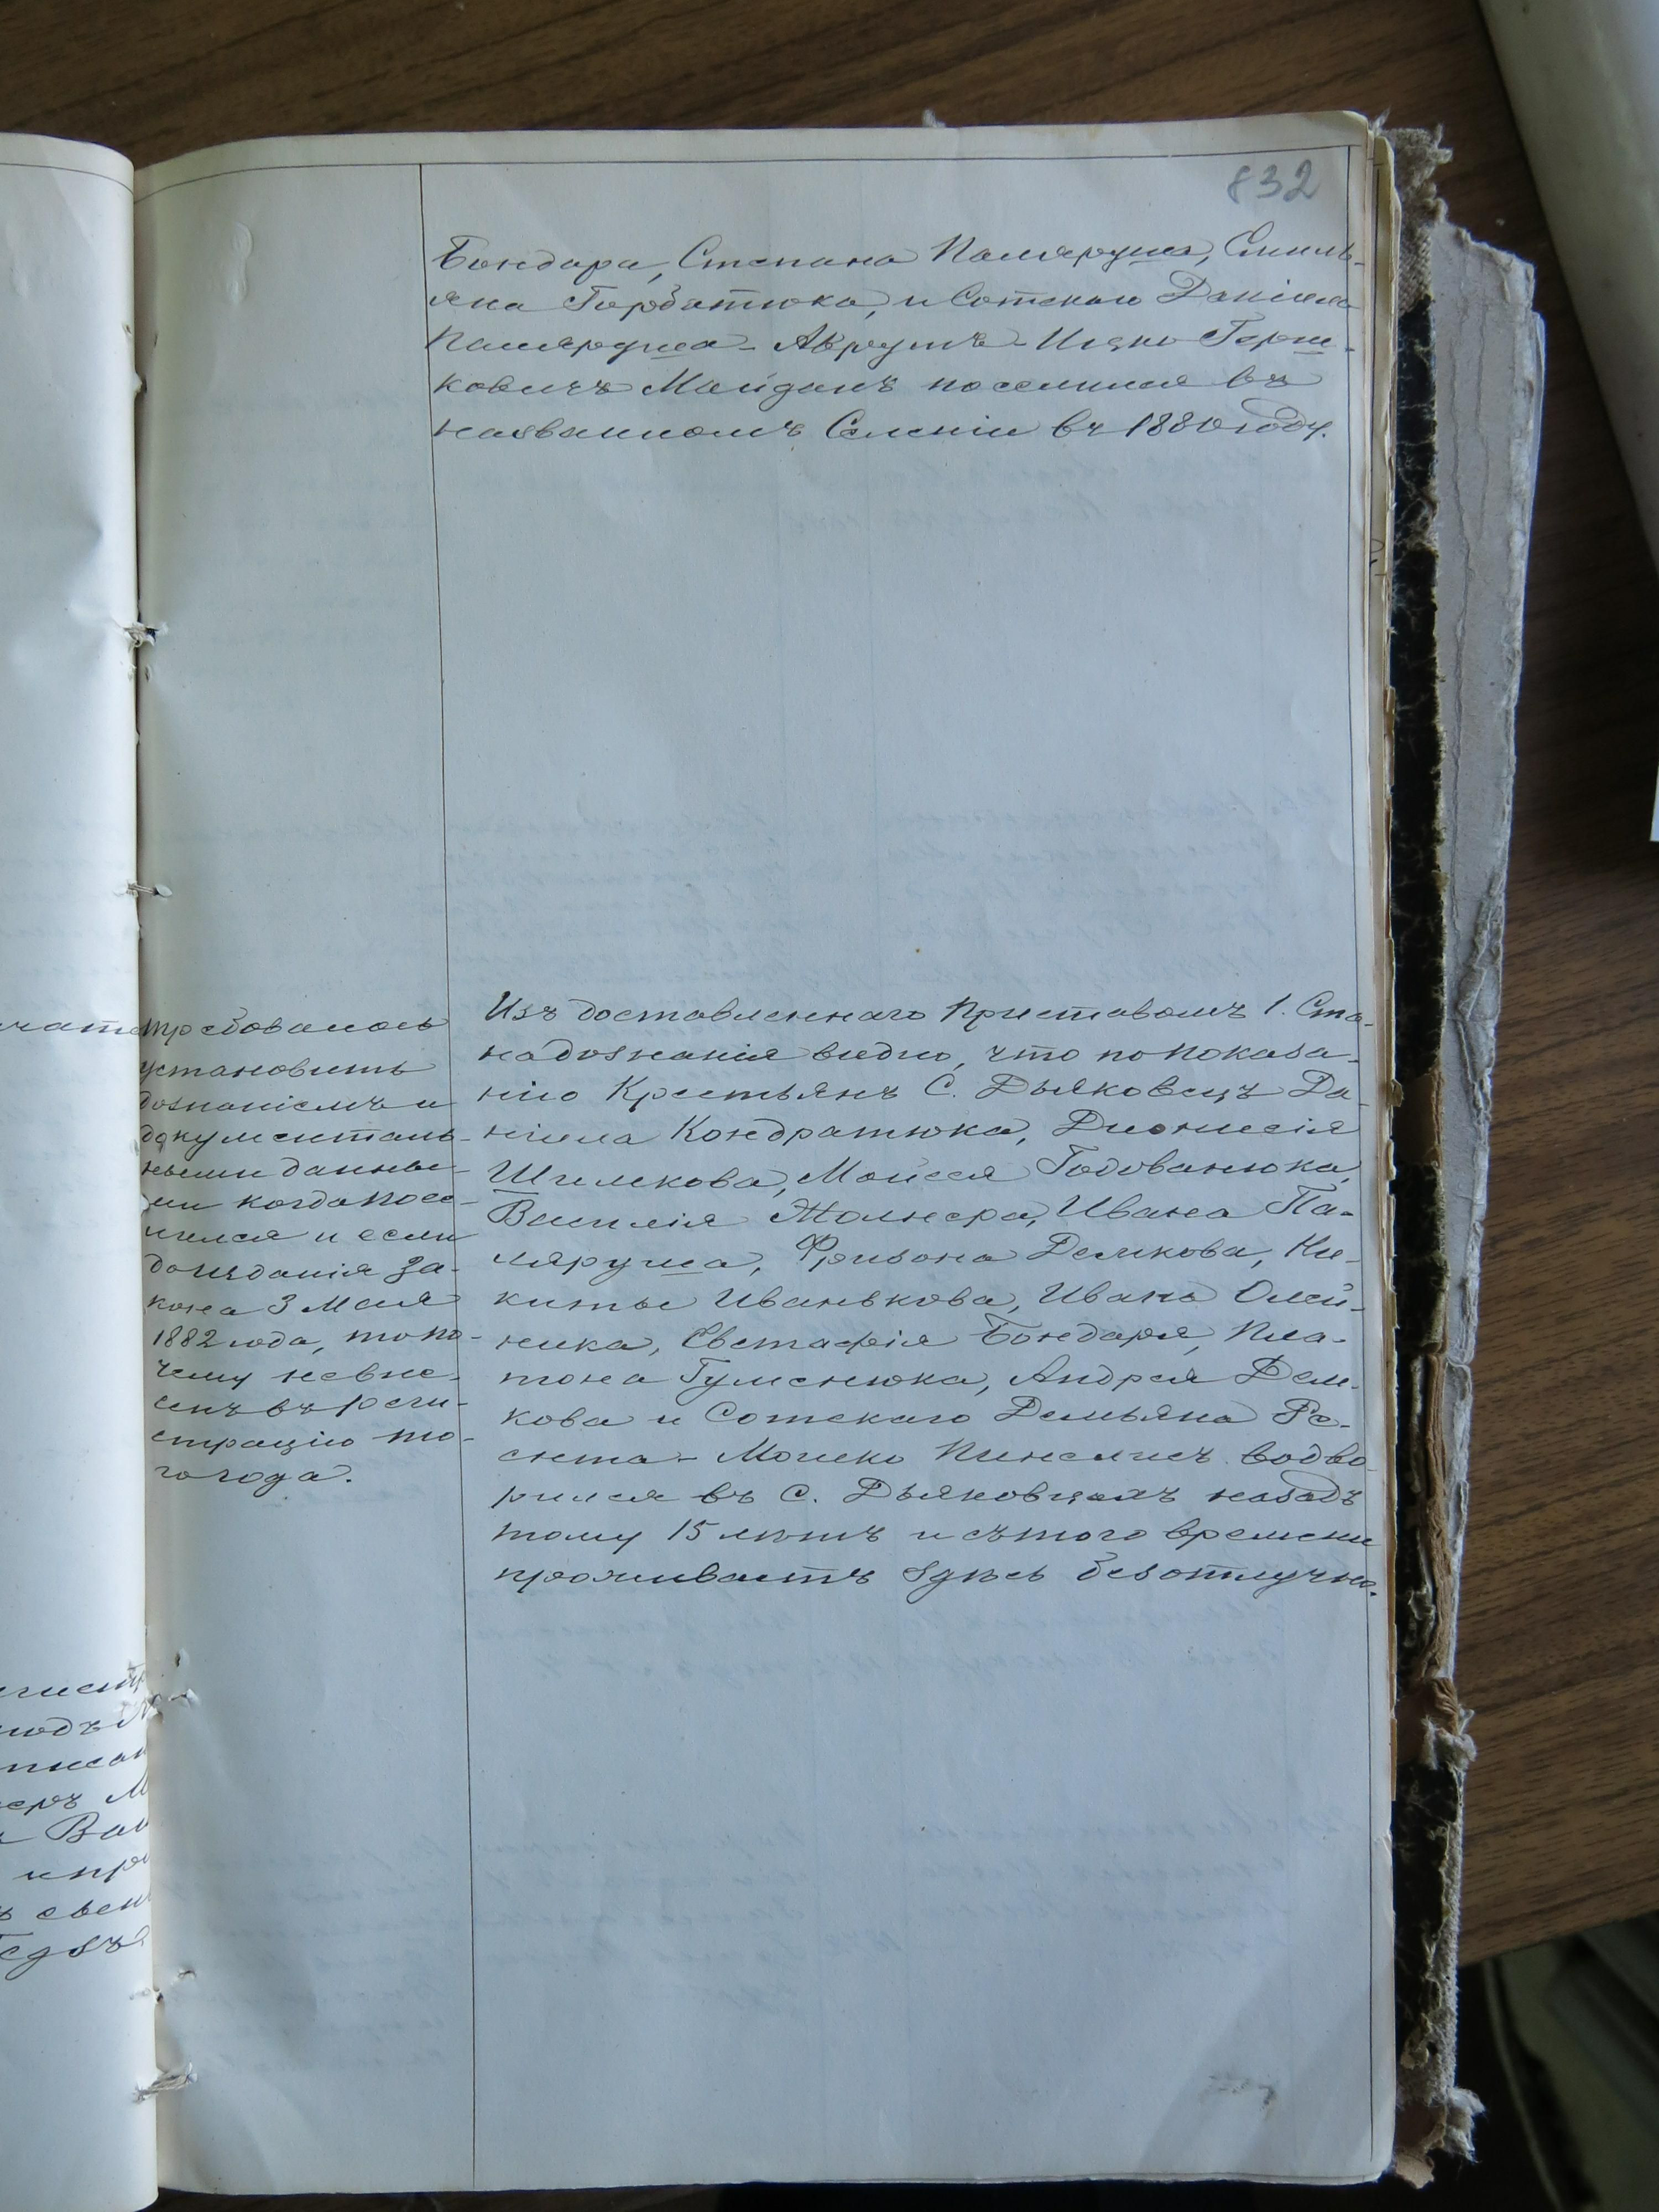 832
Бондаря, Степана Паляруша, Емиль-
яна Горбатюка, и Сотскаго Данiила
Паляруша - Аврумъ - Ицко Герш-
ковичъ Майданъ поселился въ
названномъ Селенiи въ 1880 году.
требовалось
установить
дознанiемъ и
документаль-
ными данны-
ми когда посе-
лился и если
до изданiя За-
кона 3 Мая
1882 года, то по-
чему не вне-
сенъ въ реги-
страцiю то-
го года.
Изъ доставленнаго Приставомъ 1. Ста-
на дознанiя видно, что по показа-
нiю Крестьянъ С. Дьяковецъ Да-
нiила Кондратюка, Дионисiя
Шилкова, Мойсея Годованюка,
Василiя Жолнера, Ивана Па-
ляруша, Фризона Демкова, Ни-
киты Иванькова, Ивана Олей-
ника, Евстафiя Бондаря, Пла-
тона Гуменюка, Андрея Дем-
кова и Сотскаго Демьяна Ре-
снета - Мошко Пинсличъ водво-
рился въ С. Дьяковцахъ назадъ
тому 15 лѣтъ и съ того времени
проживаетъ здѣсь безотлучно.